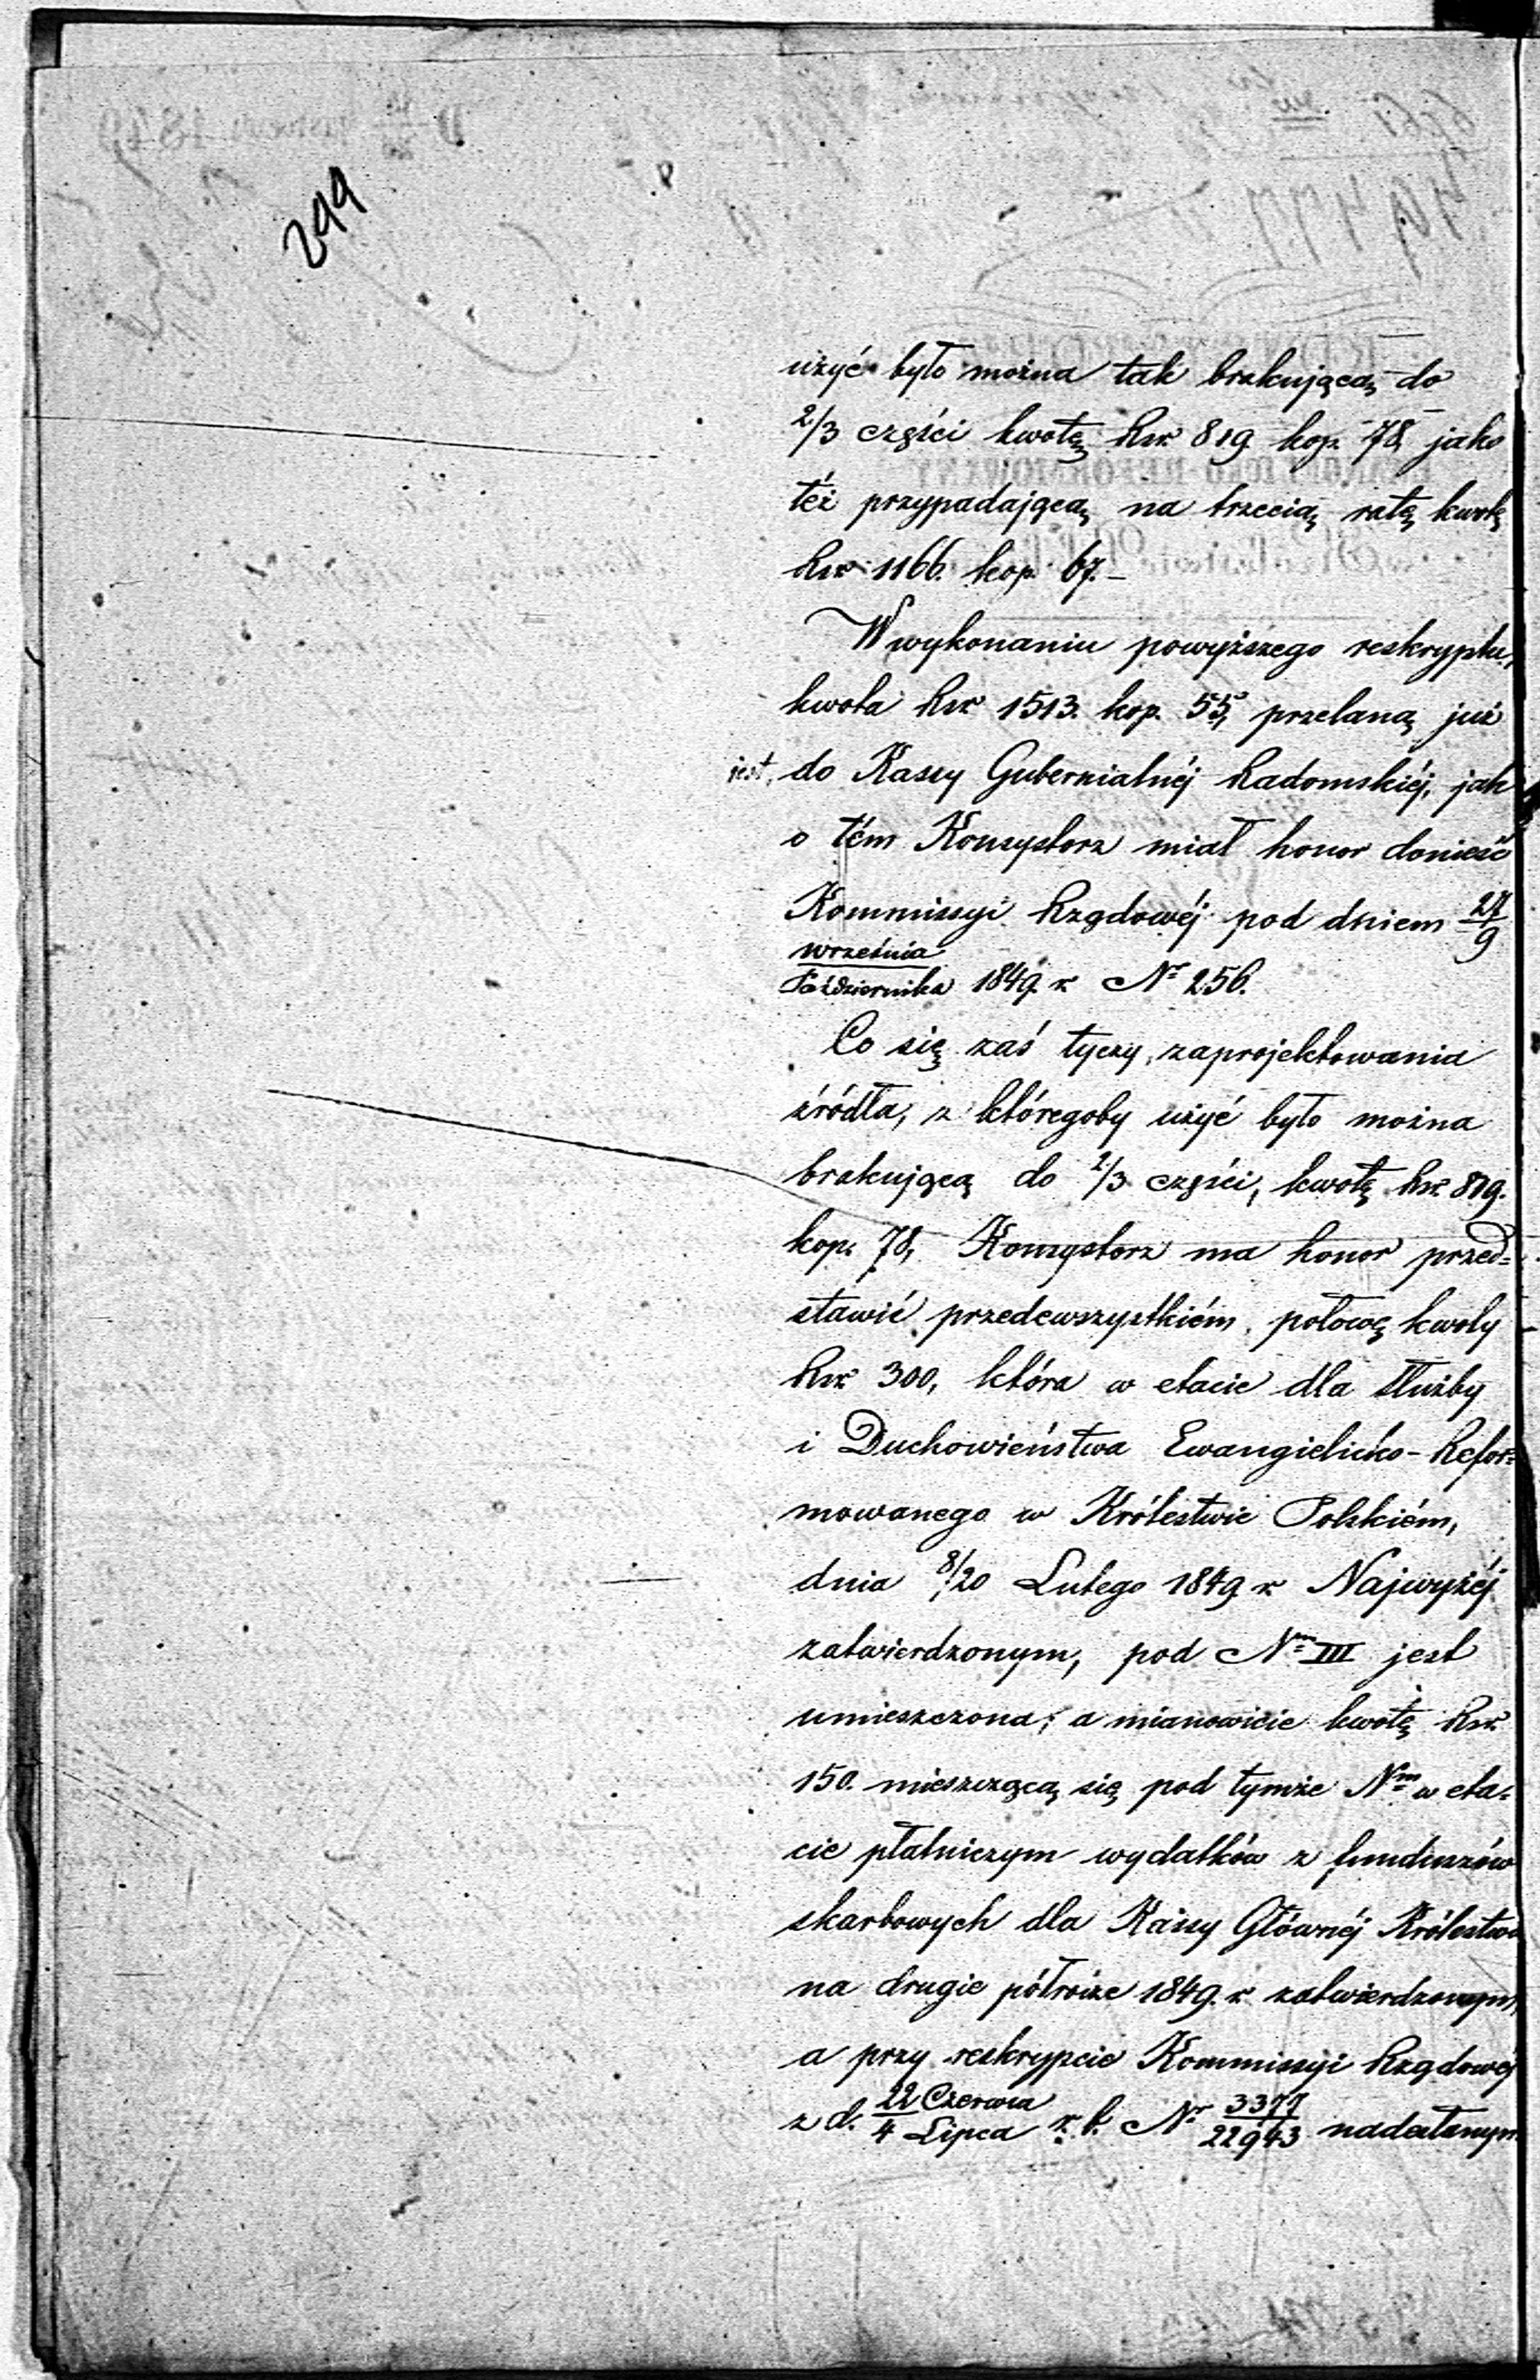 299
użyć było można tak brakującą do
2/3 części kwotę Rsr. 819 kop. 78, jako
téż przypadającą na trzecią ratę kwotę
Rsr 1166. kop. 67.–
W wykonaniu powyższego reskryptu,
kwota Rsr 1513. kop. 55, przelaną już
jest, do Kassy Gubernialnéj Radomskiéj, jak
o tém Konsystorz miał honor donieść
Kommissyi Rządowéj pod dniem 27/9
września/Października 1849. r. Nr 256.
Co się zaś tyczy, zaprojektowania
źródła, z któregoby użyć było można
brakującą do 2/3 części, kwotę Rsr. 819.
kop. 78, Konsystorz ma honor przed=
stawić przedewszystkiém, połowę kwoty
Rsr 300, która w etacie dla służby
i Duchowieństwa Ewangielicko-Refor=
mowanego w Królestwie Polskiém,
dnia 8/20 Lutego 1849 r. Najwyżéj
zatwierdzonym, pod Nm III jest
umieszczona; a mianowicie kwotę Rsr.
150. mieszczącą się pod tymże Nm w eta=
cie płatniczym wydatków z funduszów
skarbowych dla Kassy Głównéj Królestwa
na drugie półrocze 1849. r. zatwierdzonym,
a przy reskrypcie Kommissyi Rządowéj
z d. 22 Czerwca/4 Lipca r. b. Nr 3377/22943 nadesłanym